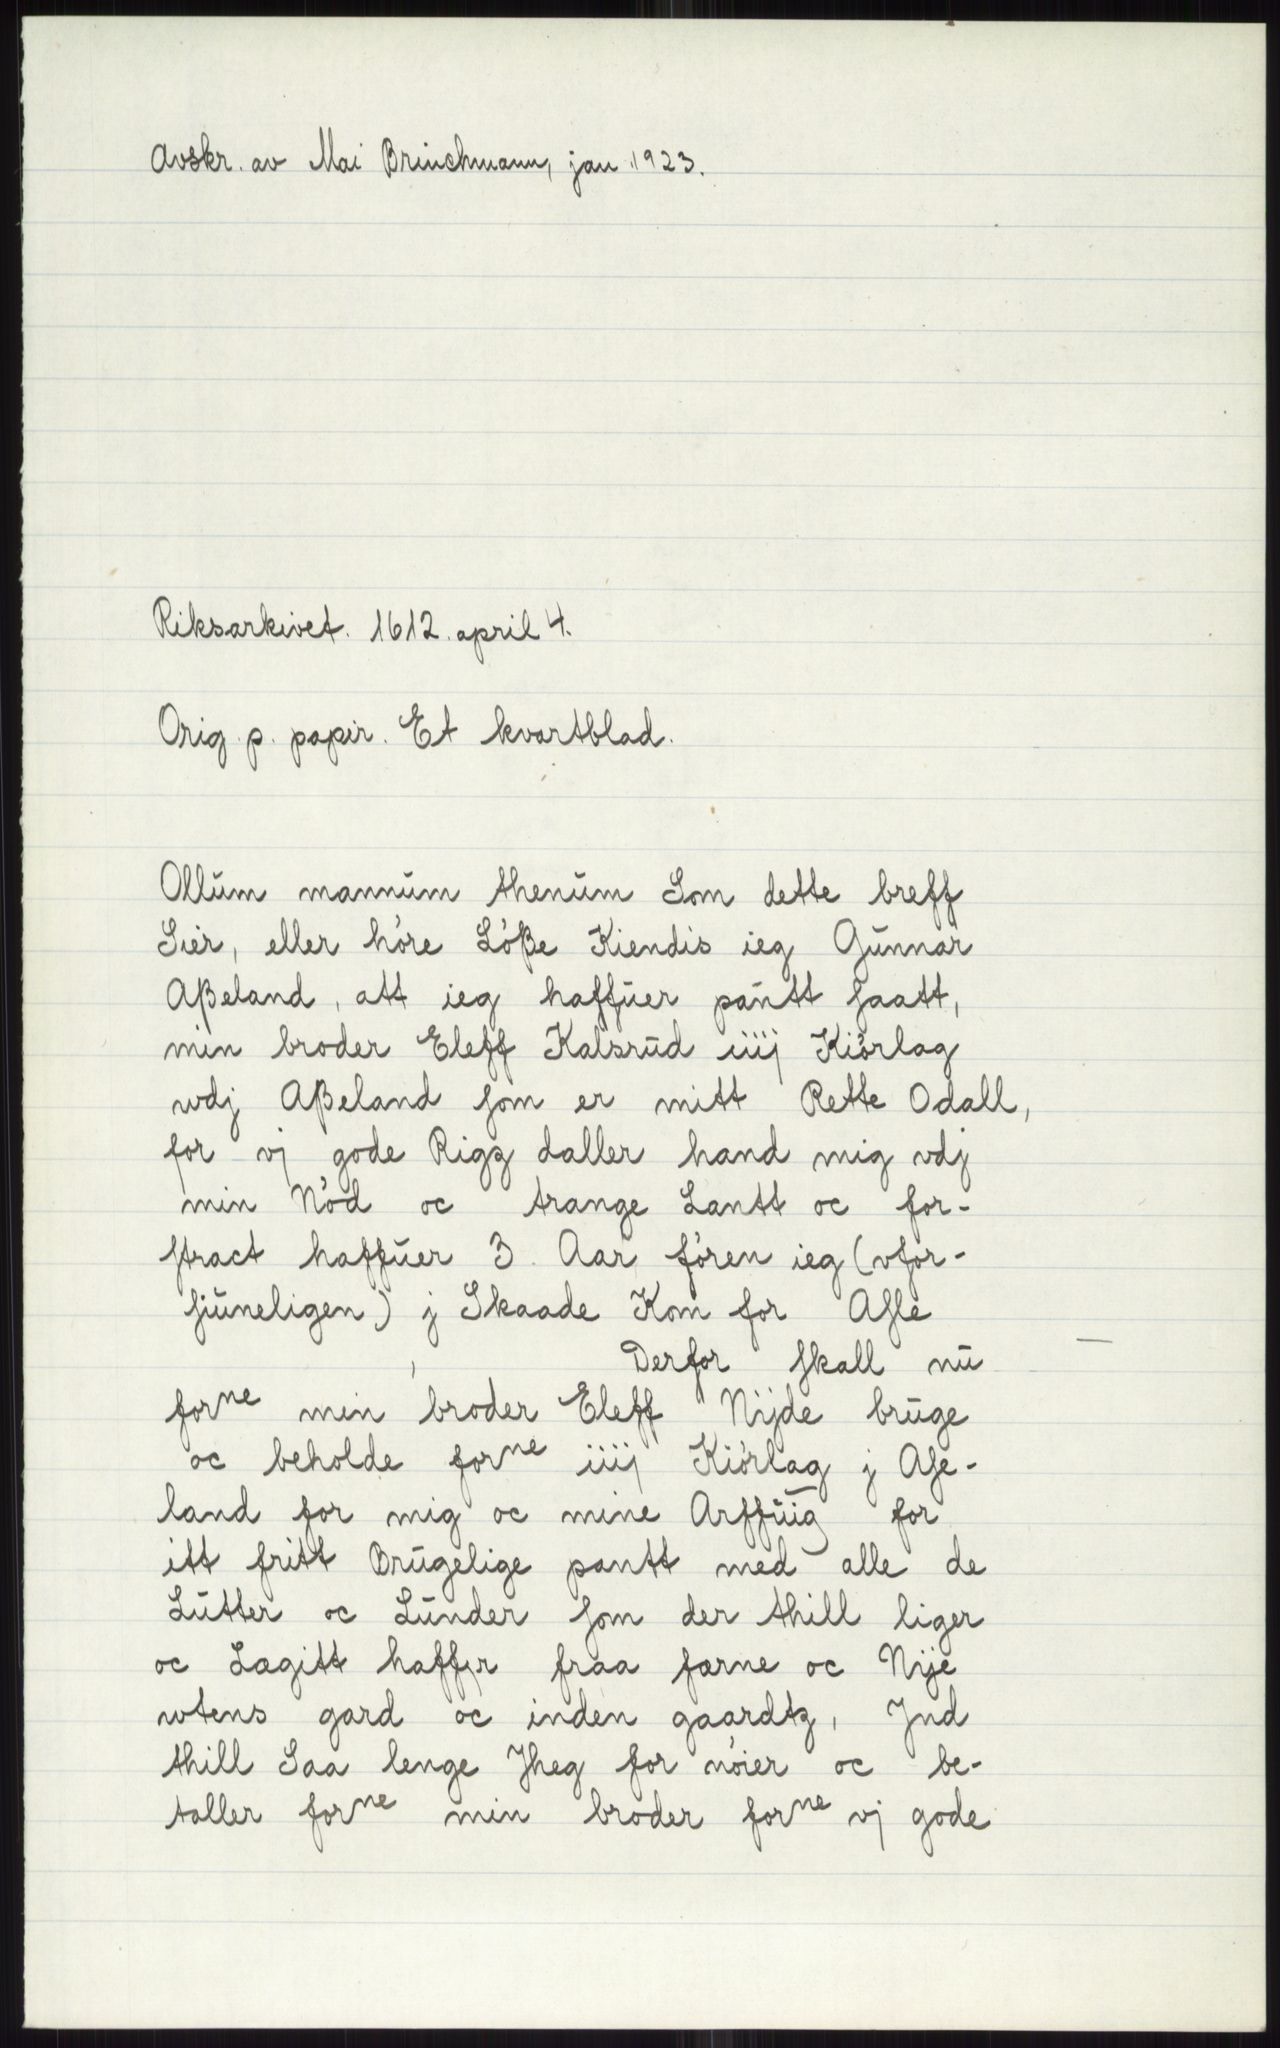 Avskr. av Mai Brinchmann, jan. 1923.
Riksarkivet. 1612. april 4.
Orig. p. papir. Et kvartblad.
Ollum mannum thenum Som dette breff
Sier, eller höre Löße Kiendis ieg Gunnar
Aßeland, att ieg haffuer pantt saatt,
min broder Eleff Kalsrud iiij Kiörlag
wdj Aßeland som er mitt Rette Odall,
for vj gode Rigz daller hand mig vdj
min Nöd oc trange Lantt oc for-
stract haffuer 3 Aar fören ieg (vfor-
siuneligen) j Skaade Kom for Asle
Derfor skall nu
forne min broder Eleff Nijde bruge
oc beholde forne iiij Kiörlag j Ase-
land for mig oc mine Arffuig for
itt fritt Brugelige pantt med alle de
Lutter oc Lunder som der thill liger
oc Lagitt haffer fraa farne oc Nije
wtens gard oc inden gaardtz, Jnd
thill Saa lenge Jheg for nöier oc be-
taller forne min broder forne vj gode